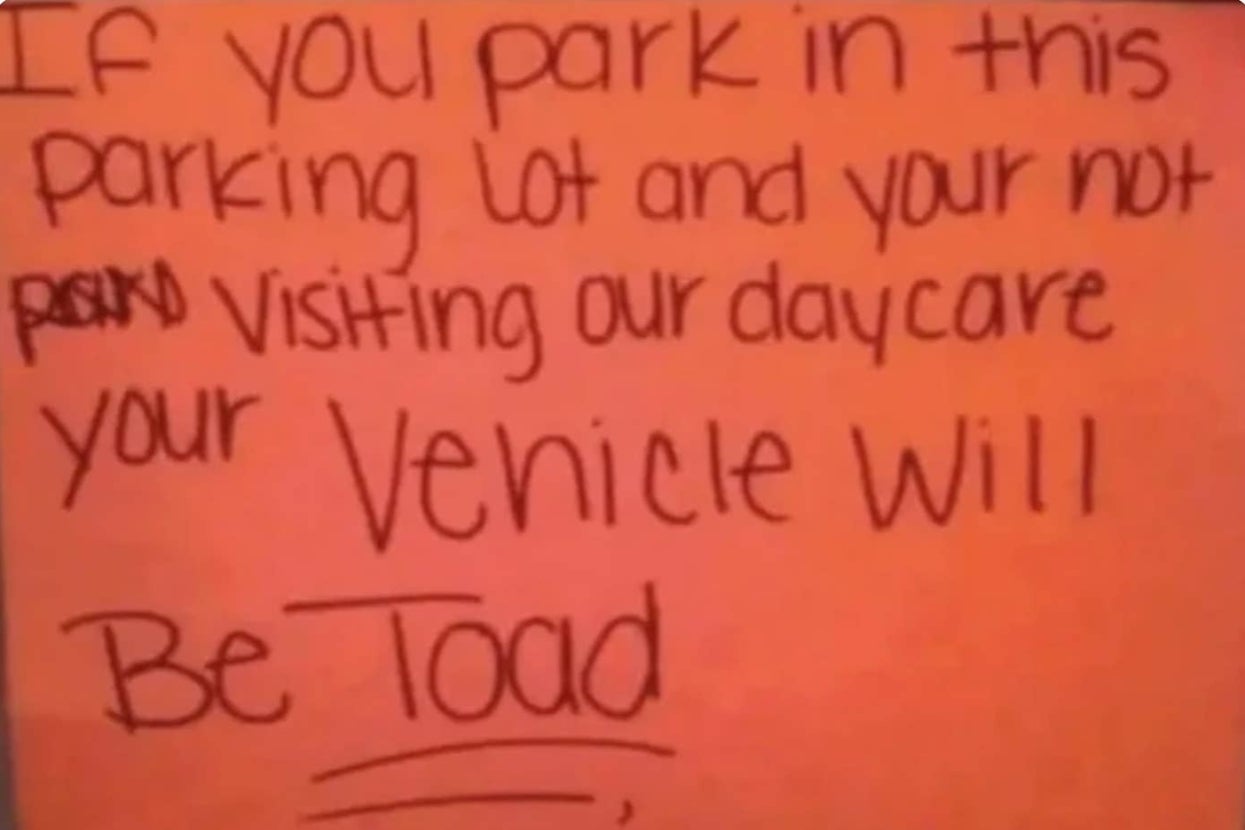 If you park in this
parking lot and your not
visiting our daycare
your Vehicle Will
Be Toad